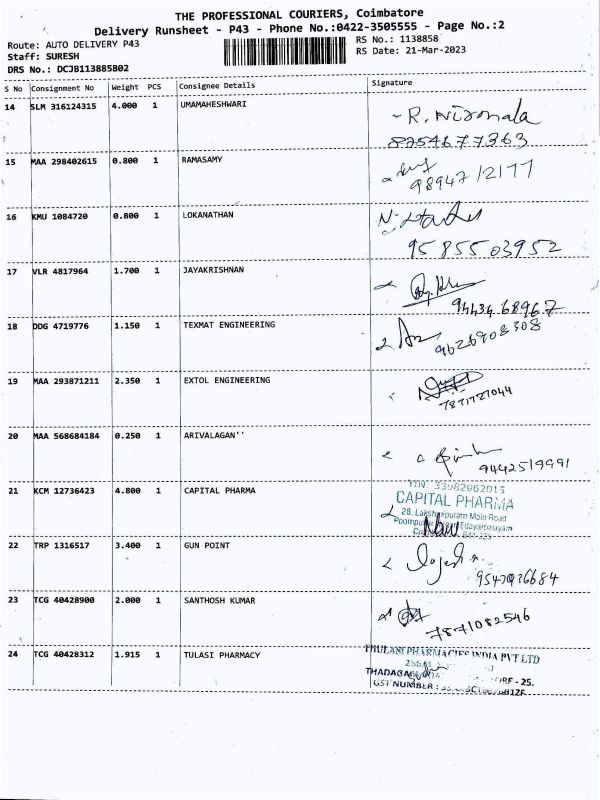 THE PROFESSIONAL COURIERS, Coimbatore
Delivery Runsheet - P43 - Phone No.:0422-3505555 - Page No.:2
Route: AUTO DELIVERY P43
RS No.: 1138858
Staff: SURESH
RS Date: 21-Mar-2023
DRS No.: DCJB113885802
S No Consignment No Weight PCS Consignee Details Signature
14 SLM 316124315 4.000 1 UMAMAHESHWARI R. Nirmala
8254677363
15 MAA 298402615 0.800 1 RAMASAMY
98947 12177
16 KMU 1084720 0.800 1 LOKANATHAN
9585503952
17 VLR 4817964 1.700 1 JAYAKRISHNAN
9443468967
18 DDG 4719776 1.150 1 TEXMAT ENGINEERING
9626908308
19 MAA 293871211 2.350 1 EXTOL ENGINEERING
7871727044
20 MAA 568684184 0.250 1 ARIVALAGAN''
9442519991
21 KCM 12736423 4.800 1 CAPITAL PHARMA
CAPITAL PHARMA
28, Main Road
Edayarpalayam
22 TRP 1316517 3.400 1 GUN POINT
23 TCG 40428900 2.000 1 SANTHOSH KUMAR
7871082546
24 TCG 40428312 1.915 1 TULASI PHARMACY
THULASI PHARMACIES INDIA PVT LTD
GST NUMBER :